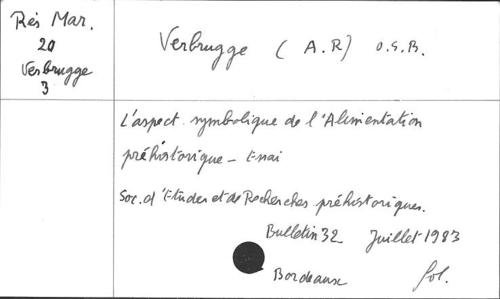 Rés Mar.
20
Verbrugge
3
Verbrugge (A.R) O.S.B.
L'aspect symbolique de l'Alimentation
préhistorique - Essai
Soc. d'Etudes et de Recherches préhistoriques.
Bulletin 32 Juillet 1983
Bordeaux